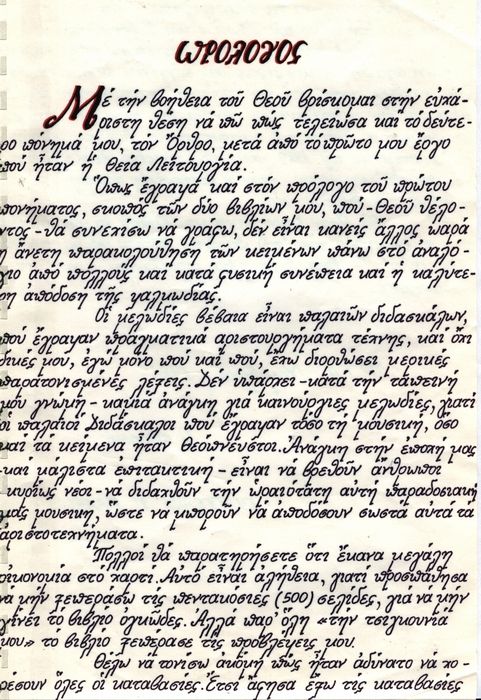 ΠΡΟΛΟΓΟΣ
Μέ τήν βοήθεια τοῦ Θεοῦ βρίσκομαι στήν εὐχά-
ριστη θέση νά πῶ πώς τελείωσα καί τό δεύτε-
ρο πόνημά μου, τόν Ὄρθρο, μετά ἀπό τό πρῶτο μου ἔργο
πού ἦταν ἡ Θεία Λειτουργία.
Ὅπως ἔγραψα καί στόν πρόλογο τοῦ πρώτου
πονήματος, σκοπός τῶν δύο βιβλίων μου, πού - Θεοῦ θέλο-
ντος - θά συνεχίσω νά γράφω, δέν εἶναι κανείς ἄλλος παρά
ἡ ἄνετη παρακολούθηση τῶν κειμένων πάνω στό ἀναλό-
γιο ἀπό πολλούς καί κατά φυσική συνέπεια καί ἡ καλύτε-
ρη ἀπόδοση τῆς ψαλμωδίας.
Οἱ μελωδίες βέβαια εἶναι παλαιῶν διδασκάλων,
πού ἔγραψαν πραγματικά ἀριστουργήματα τέχνης, καί ὄχι
δικές μου, ἐγώ μόνο πού καί πού, ἔχω διορθώσει μερικές
παρατονισμένες λέξεις. Δέν ὑπάρχει - κατά τήν ταπεινή
μου γνώμη - καμιά ἀνάγκη γιά καινούργιες μελωδίες, γιατί
οἱ παλαιοί Διδάσκαλοι πού ἔγραψαν τόσο τή μουσική, ὅσο
καί τά κείμενα ἦταν Θεόπνευστοι. Ἀνάγκη στήν ἐποχή μας
-καί μάλιστα ἐπιτακτική - εἶναι νά βρεθοῦν ἄνθρωποι
- κυρίως νέοι - νά διδαχθοῦν τήν ὡραιότατη αὐτή παραδοσιακή
μας μουσική, ὥστε νά μποροῦν νά ἀποδόσουν σωστά αὐτά τά
ἀριστοτεχνήματα.
Πολλοί θά παρατηρήσετε ὅτι ἔκανα μεγάλη
οἰκονομία στό χαρτί. Αὐτό εἶναι ἀλήθεια, γιατί προσπάθησα
νά μήν ξεπεράσω τίς πεντακόσιες (500) σελίδες, γιά νά μήν
γίνει τό βιβλίο ὀγκῶδες. Ἀλλά παρ' ὅλη «τήν τσιγκουνιά
μου» τό βιβλίο ξεπέρασε τίς προβλέψεις μου.
Θέλω νά τονίσω ἀκόμη πώς ἦταν ἀδύνατο νά χω-
ρέσουν ὅλες οἱ καταβασίες. Ἔτσι ἄφησα ἔξω τίς καταβασίες